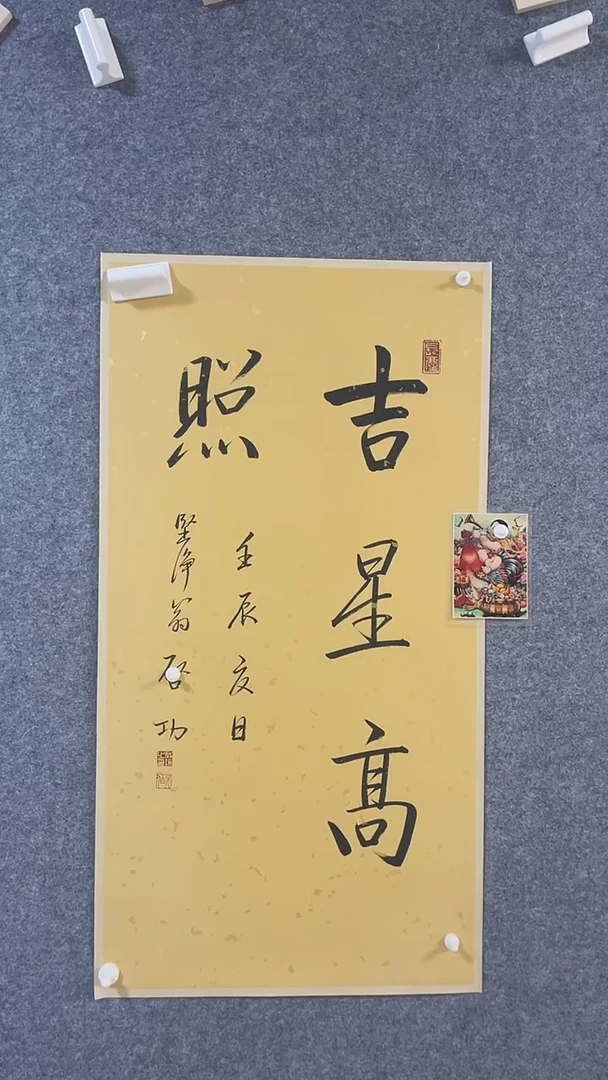 吉星高
照
壬辰夜日
坚净翁启功